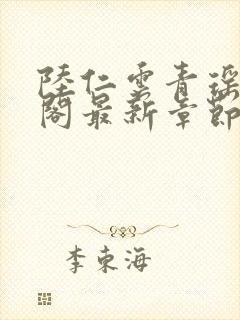 陸仁雲青瑶
閣最新章節
李東海